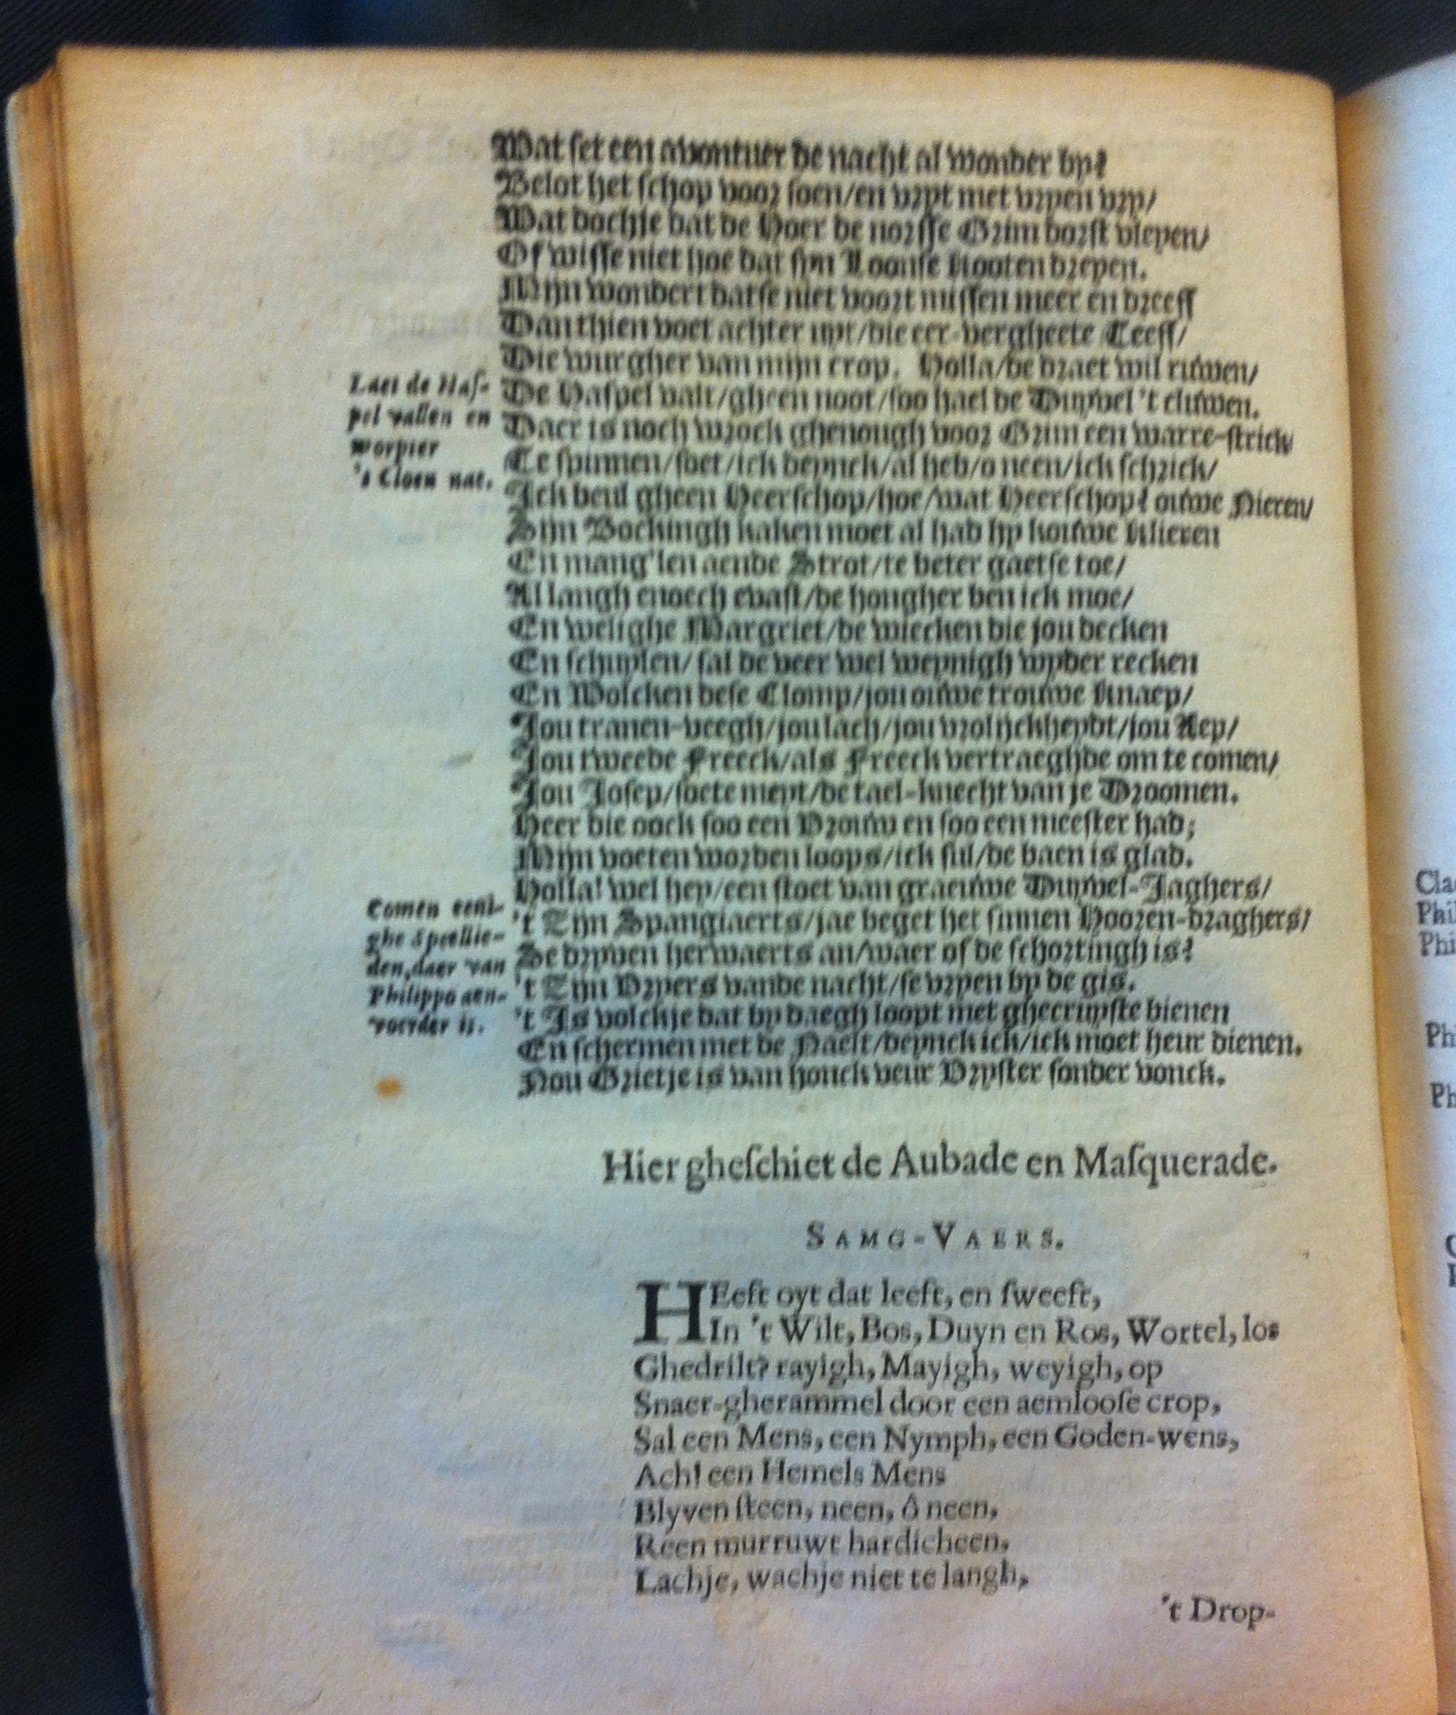 Wat set een avontuer de nacht al wonder by?
Belot het schop voor soen/en vrypt met vrypen vry/
Wat dochje dat de Hoer de norsse Grim borst vleyen/
Of wisse niet hoe dat syn Loonse Kooten dreyen.
Mijn wondert datse niet voort missen meer en dreeff
Dan thien voet achter uyt/die eer-vergheete Teeff/
Die wurgher van mijn crop. Holla/de draet wil ruwen/
De Haspel valt/gheen noot/soo hael de Duyvel 't cluwen.
Daer is noch wrock ghenough voor Grim een warre-strick
Te spinnen/soet/ick deynck/al heb/o neen/ick schrick/
Ick beul gheen Heerschop/hoe/wat Heerschop? ouwe Nieren/
Sijn Bockingh kaken moet al had hy kouwe Klieren
En mang'len aende Strot/te beter gaetse toe/
Al langh enoech evast/de hongher ben ick moe/
En welighe Margriet/de wiecken die jou decken
En schuylen/sal de veer wel weynigh wyder recken
En Wolcken dese Clomp/jou ouwe trouwe Knaep/
Jou tranen-veegh/jou lach/jou vrolijckheydt/jou Aep/
Jou tweede Freeck/als Freeck vertraeghde om te comen/
Jou Josep/soete meyt/de tael-knecht van je Droomen.
Heer die oock soo een Vrouw en soo een meester had;
Mijn voeten worden loops/ick sul/de baen is glad.
Holla! wel hey/een stoet van graeuwe Duyvel-Jaghers/
't Zijn Spangiaerts/jae beget het sinnen Hooren-draghers/
Se dryven herwaerts an/waer of de schortingh is?
't Zijn Vrypers vande nacht/se vrypen by de gis.
't Is volckje dat by daegh loopt met gheeruyste bienen
En schermen met de Naelt/deynck ick/ick moet heur dienen.
Nou Grietje is van honck veur Vryster sonder vonck.
Laet de Haſ-
pel vallen en
worpter
's Cloen nat.
Comen eeni-
ghe Speellie-
den, daer van
Philippo aen-
voerder is.
Hier gheſchiet de Aubade en Maſquerade.
SAMG-VAERS.
HEeft oyt dat leeft, en ſweeft,
In 't Wilt, Bos, Duyn en Ros, Wortel, los
Ghedrilt? rayigh, Mayigh, weyigh, op
Snaer-gherammel door een aemlooſe crop,
Sal een Mens, een Nymph, een Goden-wens,
Ach! een Hemels Mens
Blyven ſteen, neen, ô neen,
Reen murruwt hardicheen,
Lachje, wachje niet te langh,
't Drop-
Cla
Phil
Phi
Ph
Ph